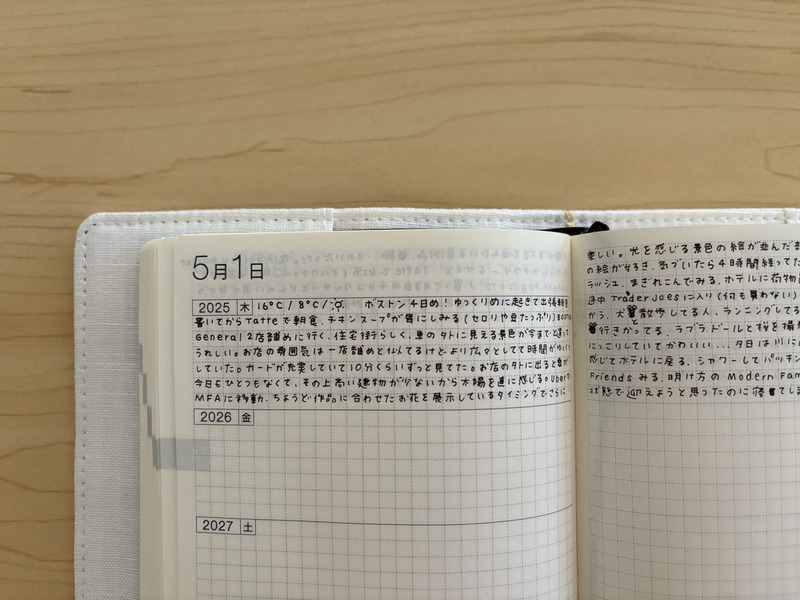 5月1日
2025 木 16℃/8℃/ ボストン4日め！ゆっくりめに起きて出張
書いてからTatteで朝食。チキンスープが胃にしみる（セロリや豆たっぷり）
General 2店舗めに行く。住宅街らしく、車のタトに見える景色が今までと違って
うれしい。お店の雰囲気は一店舗めと似てるけどより広々としてて時間がゆっくり
していた。カードが充実していて10分くらいずっと見てた。お店のタトに出ると
今日もひとつもなくて、その上高い建物が少ないから太陽を直に感じる。Uberで
MFAに移動、ちょうど作品に合わせたお花を展示しているタイミングでさらに
2026 金
2027 土
楽しい。光を感じる景色の絵が並んだ
の絵が好き。気づいたら4時間経ってた
ラッシュ、まぎれこんでみる。ホテルに荷物
途中Trader Joesに入り（何も買わない）
かう。犬散歩してる人、ランニングしてる
行きかってる。ラブラドールと桜を撮
にっこりしていてかわいい…夕日は川に
感じてホテルに戻る。シャワーしてパッキン
Friendsみる。明け方のModern Fam
状態で迎えようと思ったのに寝てし